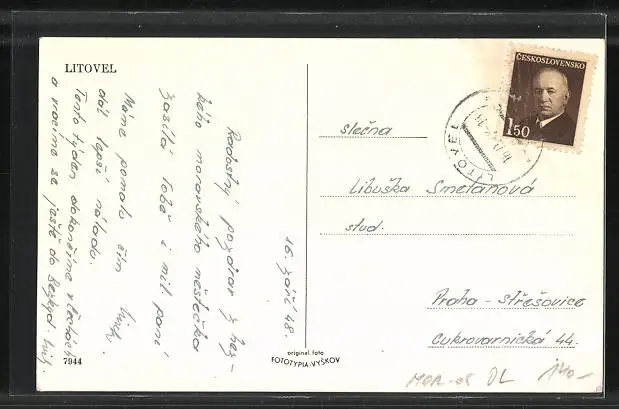 LITOVEL
16. září 48.
Radostný pozdrav z hez-
kého moravského městečka
zasílá Tobě i mil. paní
Máme pomalu čím
dál lepší náladu.
Tento týden dokončíme v Čechách
a vracíme se ještě do Bezkyd.
7944
original foto
FOTOTYPIA-VYŠKOV
ČESKOSLOVENSKO
1.50
LITOVEL
slečna
Libuška Smetanová
stud.
Praha - Střešovice
Cukrovarnická 44.
MOR-OS OL 140-